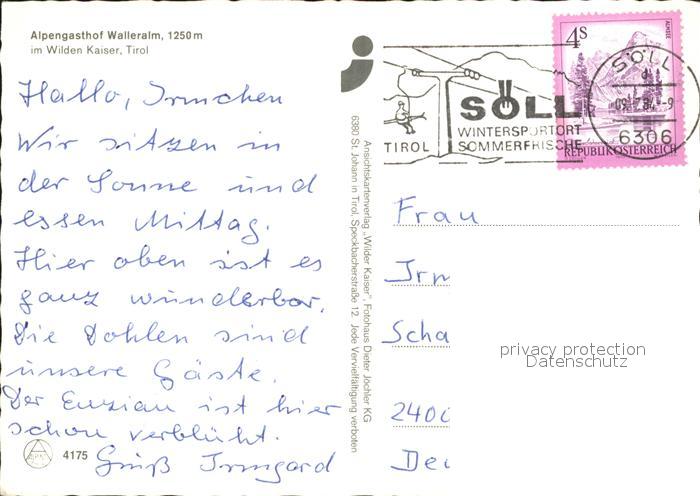 Alpengasthof Walleralm, 1250 m
im Wilden Kaiser, Tirol
Hallo, Irmchen
Wir sitzen in
der Sonne und
essen Mittag.
Hier oben ist es
ganz wunderbar.
Die Dohlen sind
unsere Gäste.
Der Enzian ist hier
schon verblüht.
Gruß Irmgard
4175
Ansichtskartenverlag „Wilder Kaiser", Fotohaus Dieter Jöchler KG
6380 St. Johann in Tirol, Speckbacherstraße 12. Jede Vervielfältigung verboten
TIROL
SÖLL
WINTERSPORTORT
SOMMERFRISCHE
4S
ALMSEE
REPUBLIK ÖSTERREICH
SÖLL
6306
Frau
Irm
Scha
2400
privacy protection
Datenschutz